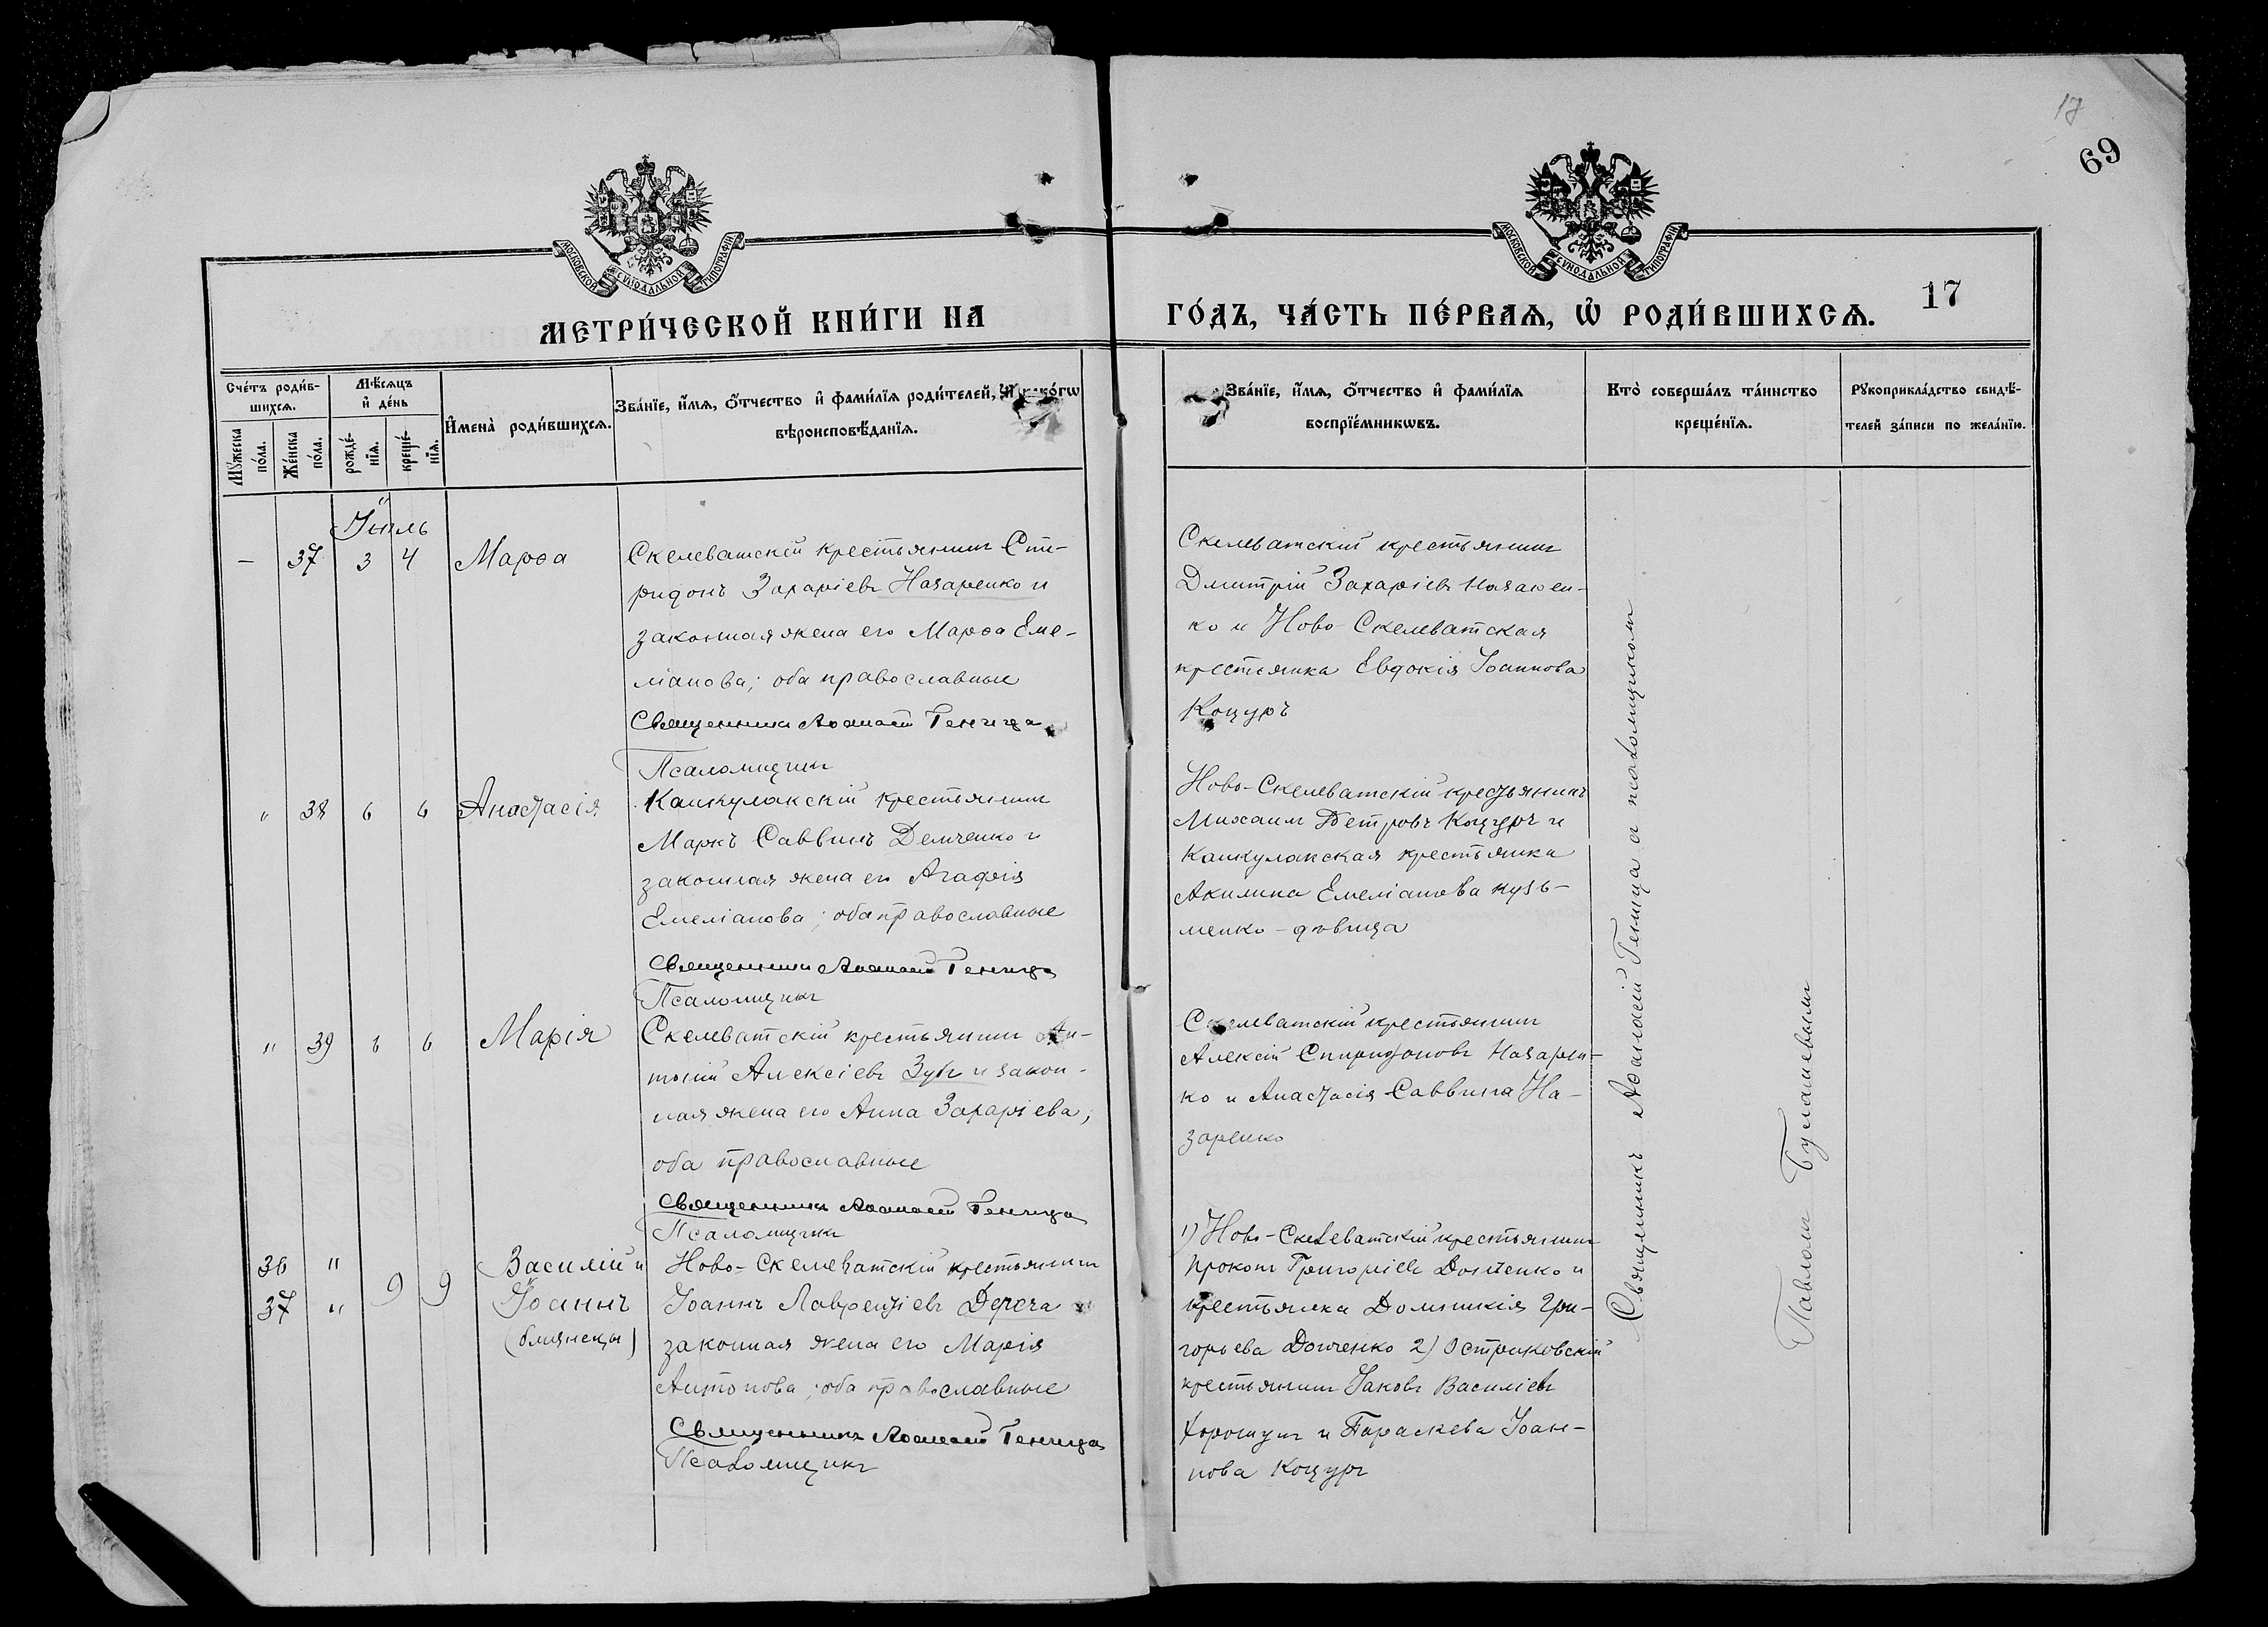 17
69
МОСКОВСКОЙ СУНОДАЛЬНОЙ ТИПОГРАФІИ
МОСКОВСКОЙ СУНОДАЛЬНОЙ ТИПОГРАФІИ
МЕТРИ́ЧЕСКОЙ КНИ́ГИ НА
ГО́ДЪ, ЧА́СТЬ ПЕ́РВАѦ, Ѡ РОДИ́ВШИХСѦ.
17
Сче́тъ роди́в-
шихсѧ.
Мꙋ́жеска
по́ла.
Же́нска
по́ла.
Мѣ́сѧцъ
и де́нь
рожде́-
нїѧ.
креще́-
нїѧ.
И҆мена̀ роди́вшихсѧ.
Зва́нїе, и҆́мѧ, ѻ҆́тчество и҆ фами́лїѧ роди́телей, и҆ како́гѡ
вѣроисповѣ́данїѧ.
Зва́нїе, и҆́мѧ, ѻ҆́тчество и҆ фами́лїѧ
воспрїе́мникѡвъ.
Кто̀ соверша́лъ та́инство
креще́нїѧ.
Рꙋкоприкла́дство свидѣ́-
телей за́писи по жела́нїю.
Іюль
— 37 3 4 Марѳа
Скелеватскій крестьянинъ Спи-
ридонъ Захаріевъ Назаренко и
законная жена его Марѳа Еме-
ліанова; оба православные
Священникъ Аѳанасій Геница
Псаломщикъ
Скелеватскій крестьянинъ
Дмитрій Захаріевъ Назарен-
ко и Ново-Скелеватская
крестьянка Евдокія Іоаннова
Коцуръ
" 38 6 6 Анастасія
Канкулакскій крестьянинъ
Маркъ Саввинъ Демченко и
законная жена его Агафія
Емеліанова; оба православные
Священникъ Аѳанасій Геница
Псаломщикъ
Ново-Скелеватскій крестьянинъ
Михаилъ Петровъ Коцуръ и
Канкулакская крестьянка
Акилина Емеліанова Кузь-
менко - дѣвица
" 39 6 6 Марія
Скелеватскій крестьянинъ Ан-
тоній Алексіевъ Зубъ и закон-
ная жена его Анна Захаріева;
оба православные
Священникъ Аѳанасій Геница
Псаломщикъ
Скелеватскій крестьянинъ
Алексій Спиридоновъ Назарен-
ко и Анастасія Саввина На-
заренко
36 "
37 "
9 9
Василій и
Іоаннъ
(близнецы)
Ново-Скелеватскій крестьянинъ
Іоаннъ Лаврентіевъ Дереча и
законная жена его Марія
Антонова; оба православные
Священникъ Аѳанасій Геница
Псаломщикъ
1) Ново-Скелеватскій крестьянинъ
Прокопъ Григоріевъ Донченко и
крестьянка Домникія Гри-
горьева Донченко 2) Остриковскій
крестьянинъ Іаковъ Василіевъ
Хорошунъ и Параскева Іоан-
нова Коцуръ
Священникъ Аѳанасій Геница с псаломщикомъ
Павломъ Булашевымъ